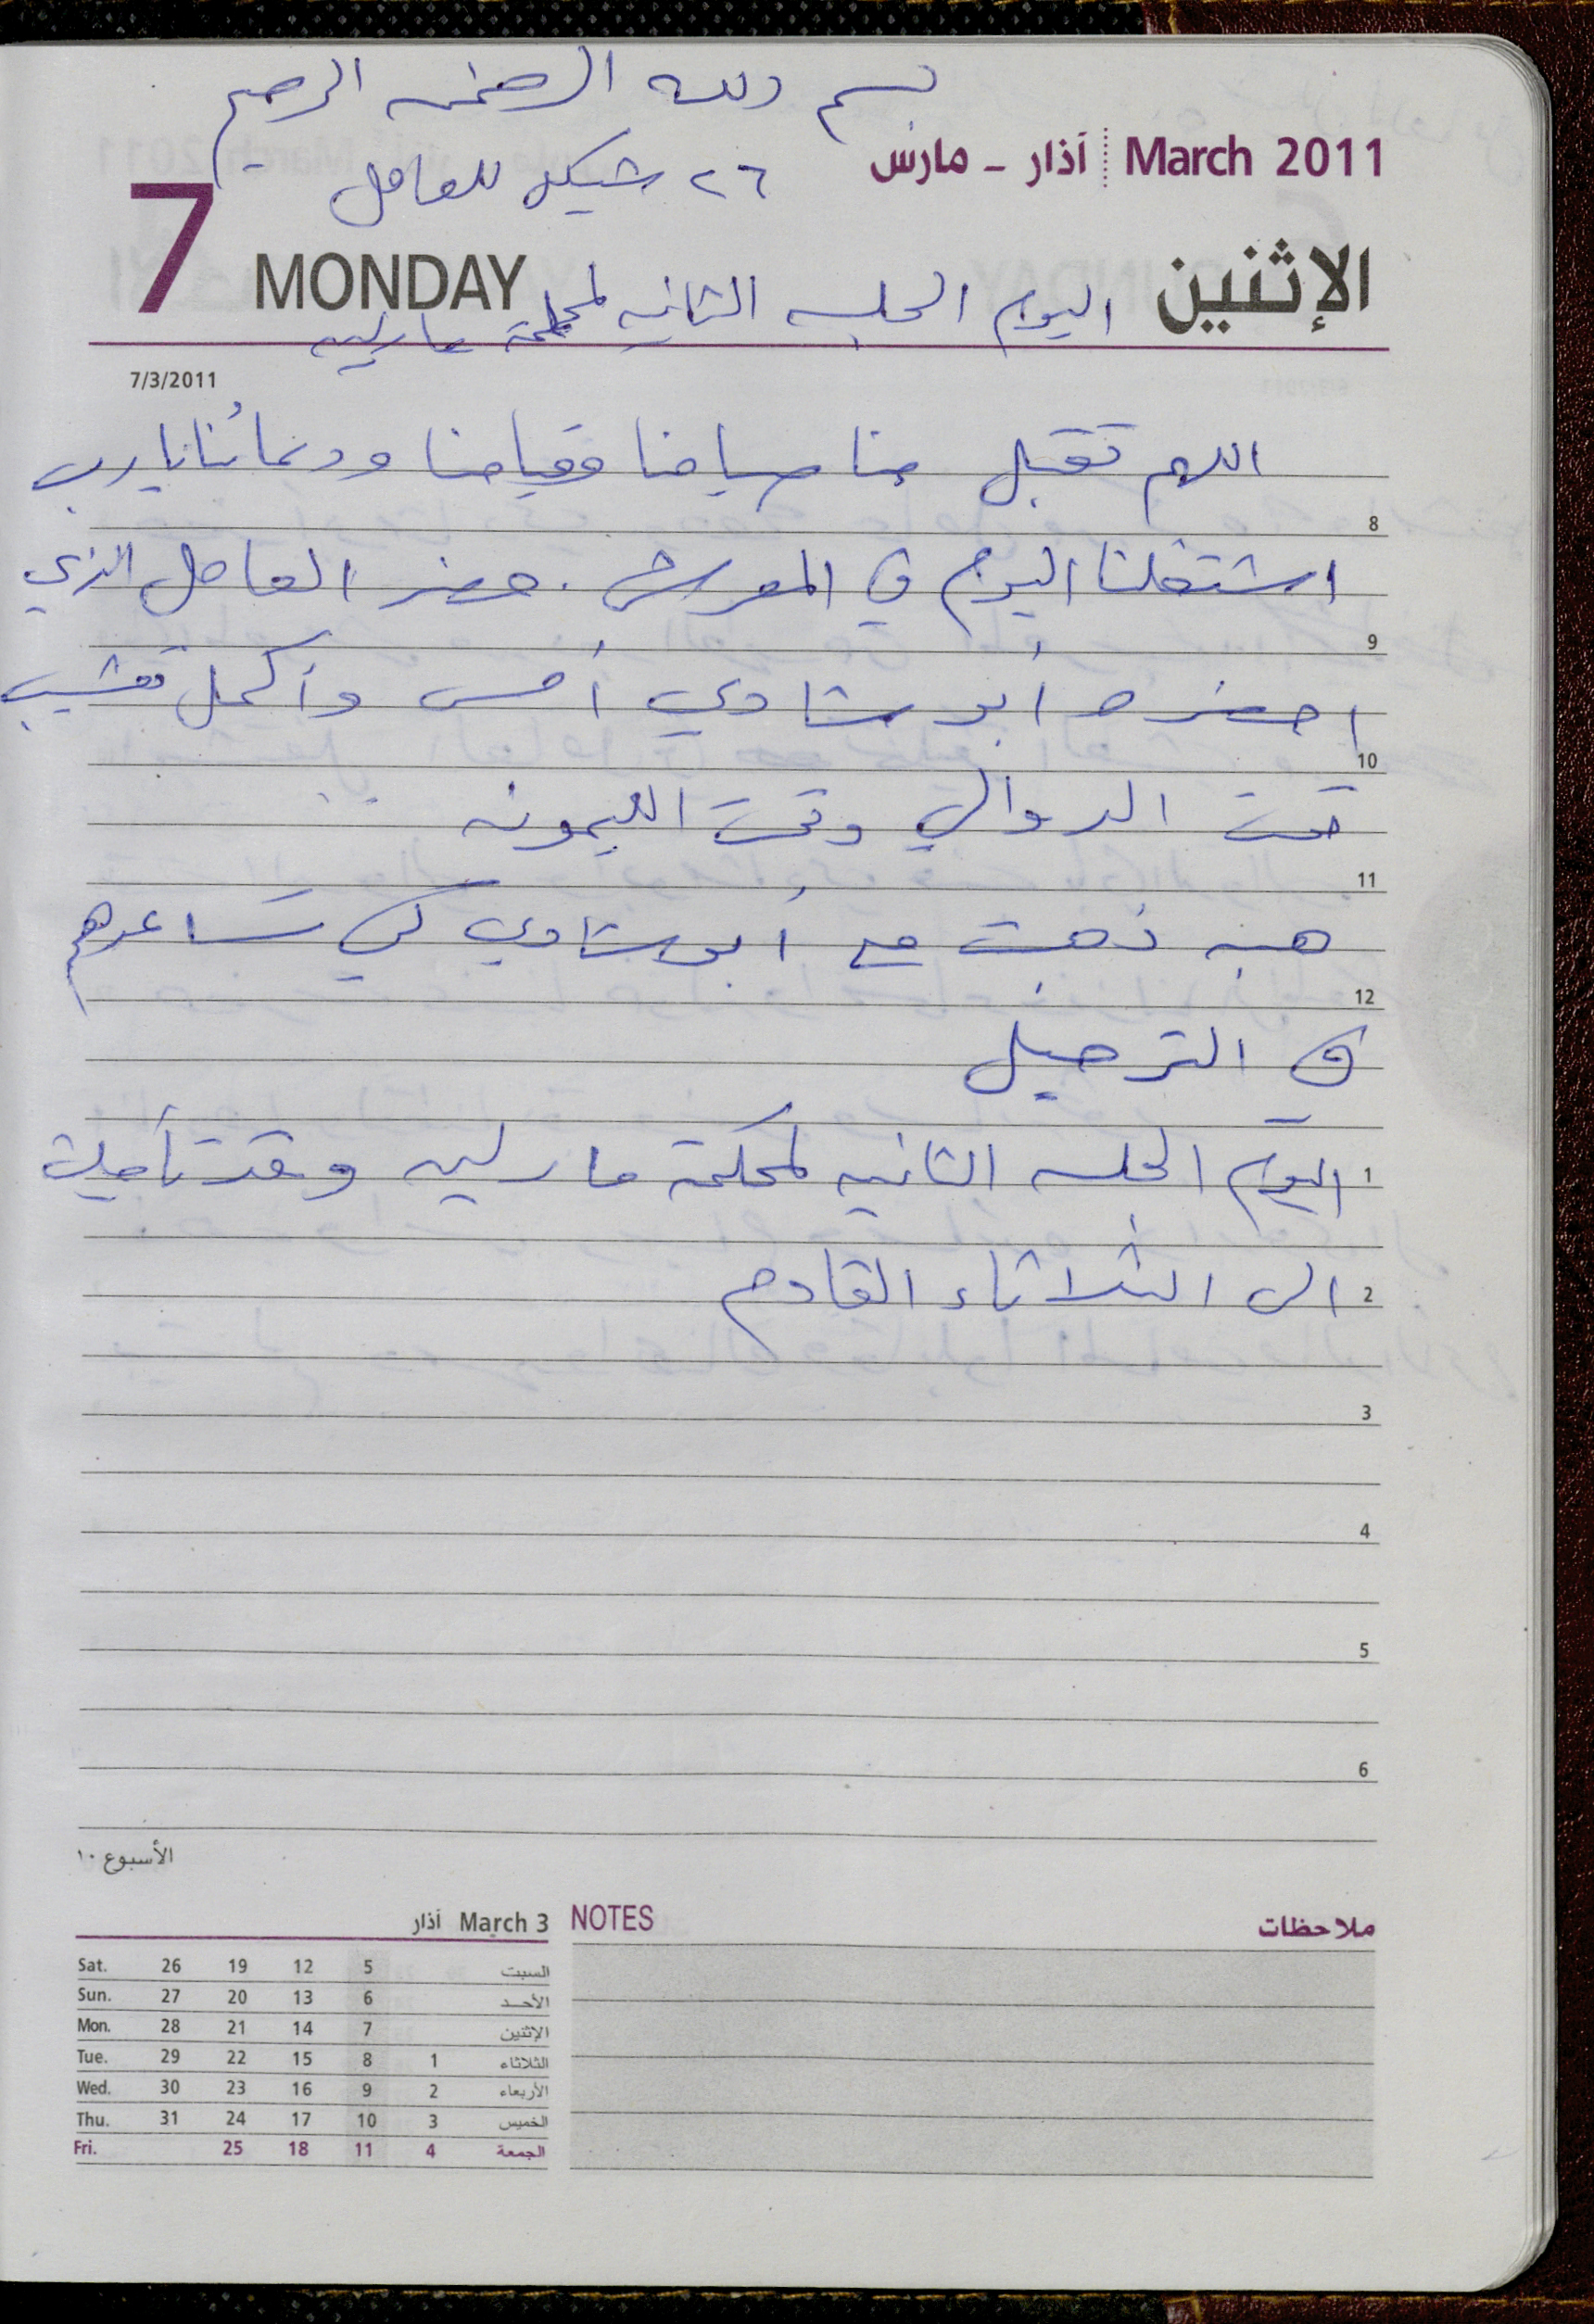 بسم الله الرحمن الرحيم
March 2011 آذار - مارس
٢٦ شيكل للعامل
7 MONDAY الإثنين
اليوم الجلسه الثانيه لمحكمة مارلين
7/3/2011
اللهم تقبل منا صيامنا وقيامنا ودعائنا يارب
8
اشتغلنا اليوم في المعرش . حضر العامل الذي
9
احضره أبو شادي أمس وأكمل تعشيب
10
تحت الدوالي وتحت الليمونه
11
هبه ذهبت مع أبو شادي كي تساعدهم
12
في الترحيل
1 اليوم الجلسه الثانيه لمحكمة مارلين وقد تأجلت
2 الى الثلاثاء القادم
3
4
5
6
الأسبوع ١٠
March 3 آذار
NOTES ملاحظات
Sat. 26 19 12 5 السبت
Sun. 27 20 13 6 الأحد
Mon. 28 21 14 7 الإثنين
Tue. 29 22 15 8 1 الثلاثاء
Wed. 30 23 16 9 2 الأربعاء
Thu. 31 24 17 10 3 الخميس
Fri. 25 18 11 4 الجمعة